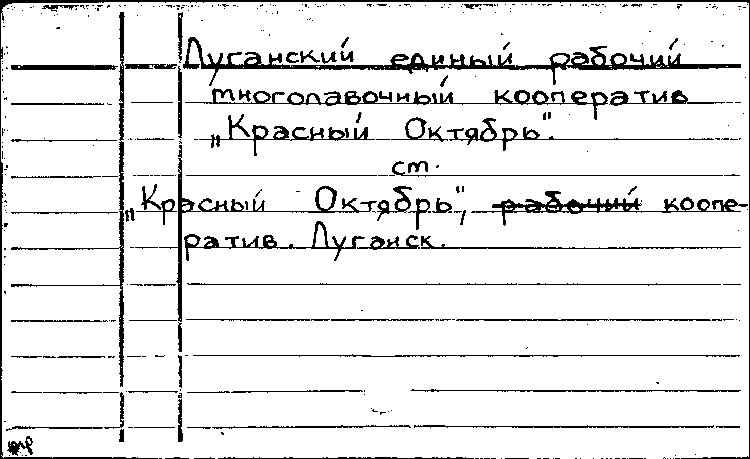 Луганский единый рабочий
многолавочный кооператив
„Красный Октябрь".
ст.
„Красный Октябрь", рабочий коопе-
ратив. Луганск.